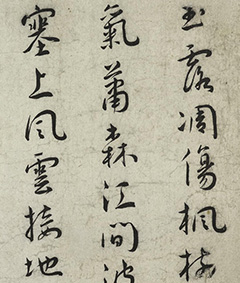 玉露凋傷楓樹
氣蕭森江間波
塞上風雲接地